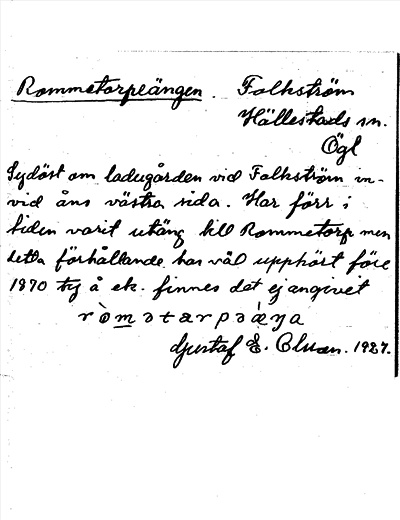 Rommetorpeängen. Folkström
Hällestads sn.
Ögl
Sydöst om ladugården vid Folkström in-
vid åns västra sida. Har förr i
tiden varit utäng till Rommetorp men
detta förhållande har väl upphört före
1870 ty å ek. finnes det ej angivet
Gustaf E. 1927.